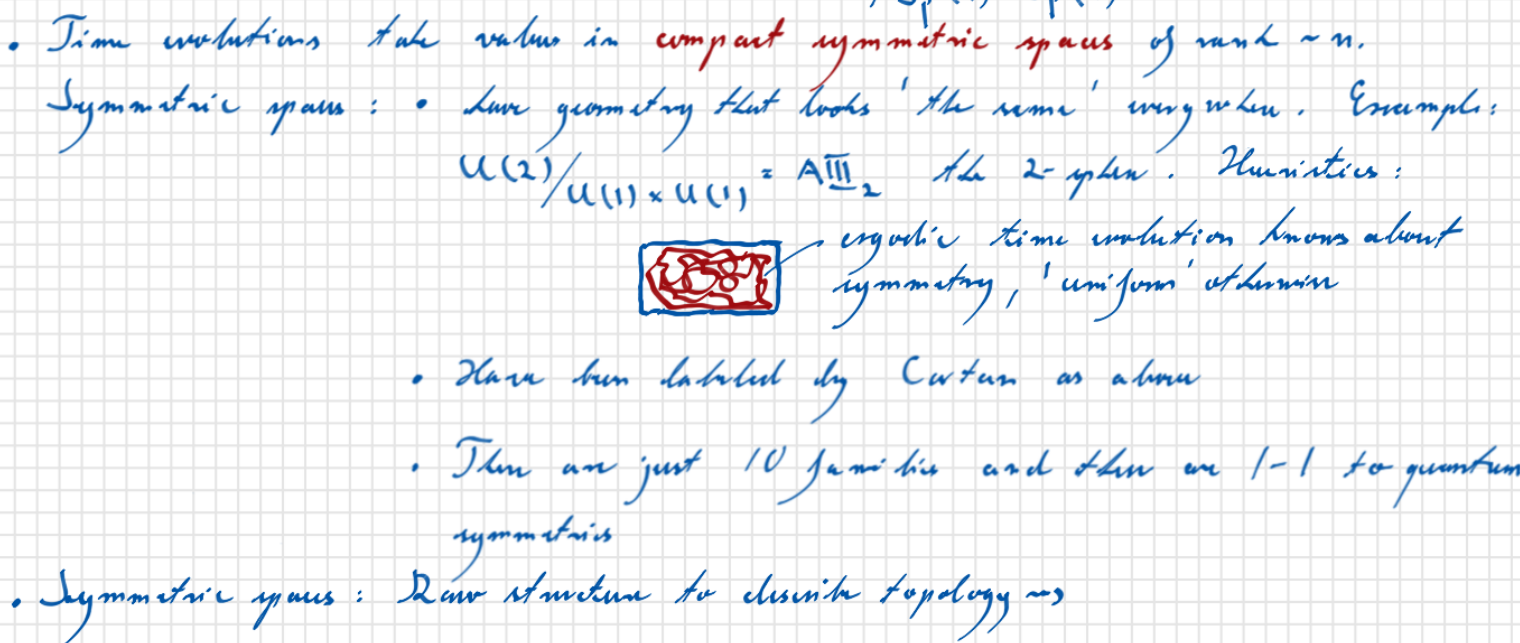 • Time evolutions take values in compact symmetric spaces of rank ~ n.
Symmetric spaces : • have geometry that looks 'the same' everywhere. Example:
U(2)/U(1) × U(1) = AIII₂ the 2-sphere. Heuristics:
ergodic time evolution knows about
symmetry, 'uniform' otherwise
• Have been labeled by Cartan as above
• There are just 10 families and these are 1-1 to quantum
symmetries
• Symmetric spaces : Raw structure to describe topology ⇝